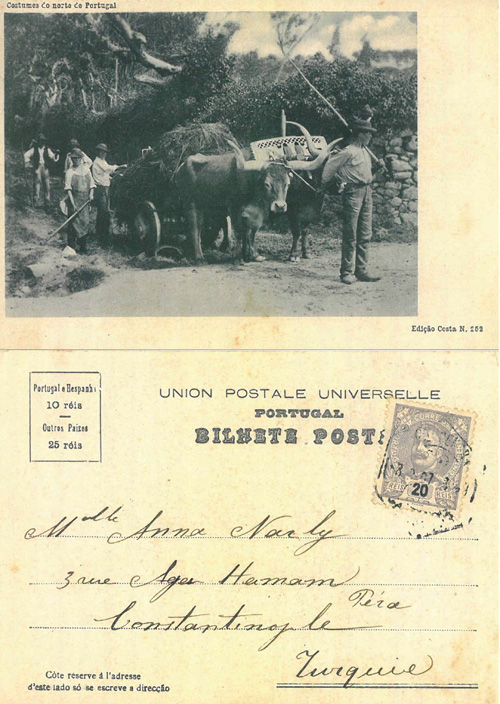 Costumes do norte de Portugal
Edição Costa N. 252
Portugal e Hespanha
10 réis
Outros Paizes
25 réis
UNION POSTALE UNIVERSELLE
PORTUGAL
BILHETE POST
20
Mlle Anna Narly
3 rue Aga Hamam
Péra
Constantinople
Turquie
Côte reservé á l'adresse
d'este lado só se escreve a direcção